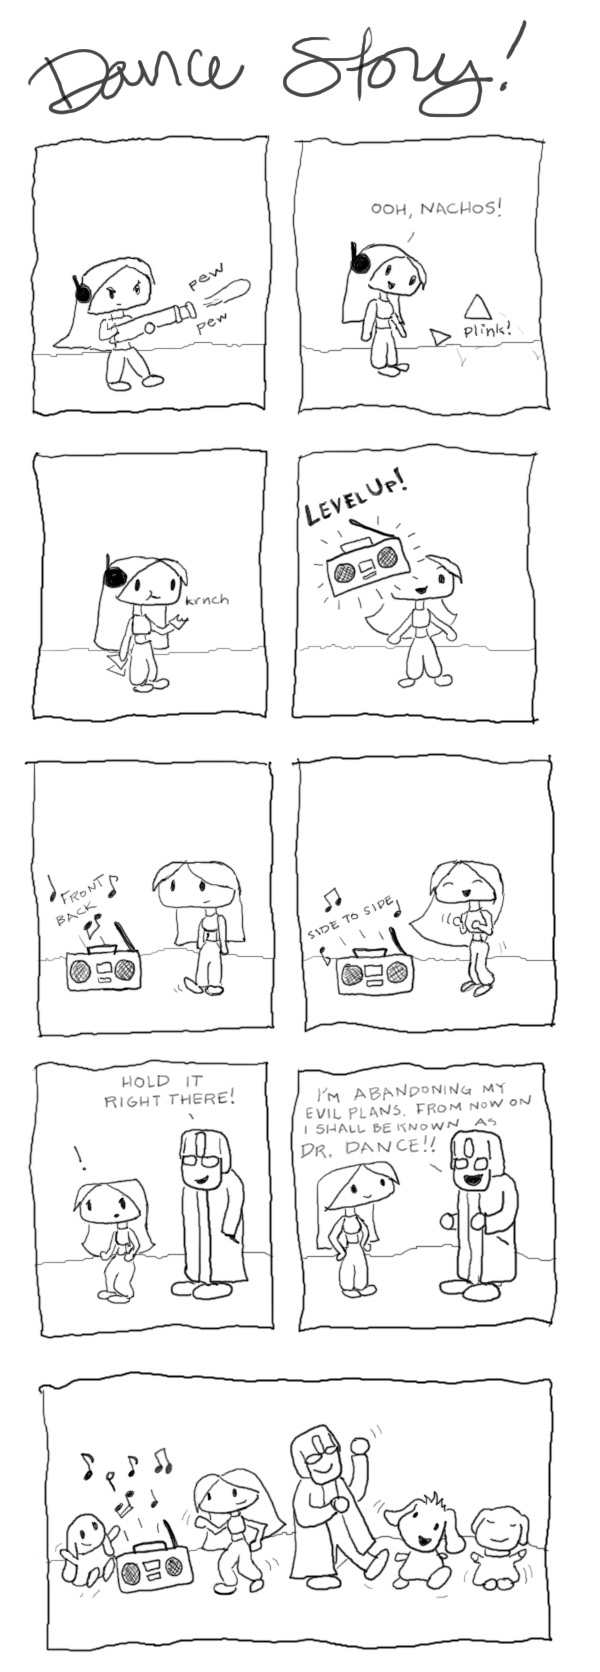 Dance Story!
pew
pew
OOH, NACHOS!
plink!
krnch
LEVEL UP!
FRONT
BACK
SIDE TO SIDE
HOLD IT
RIGHT THERE!
!
I'M ABANDONING MY
EVIL PLANS. FROM NOW ON
I SHALL BE KNOWN AS
DR. DANCE!!